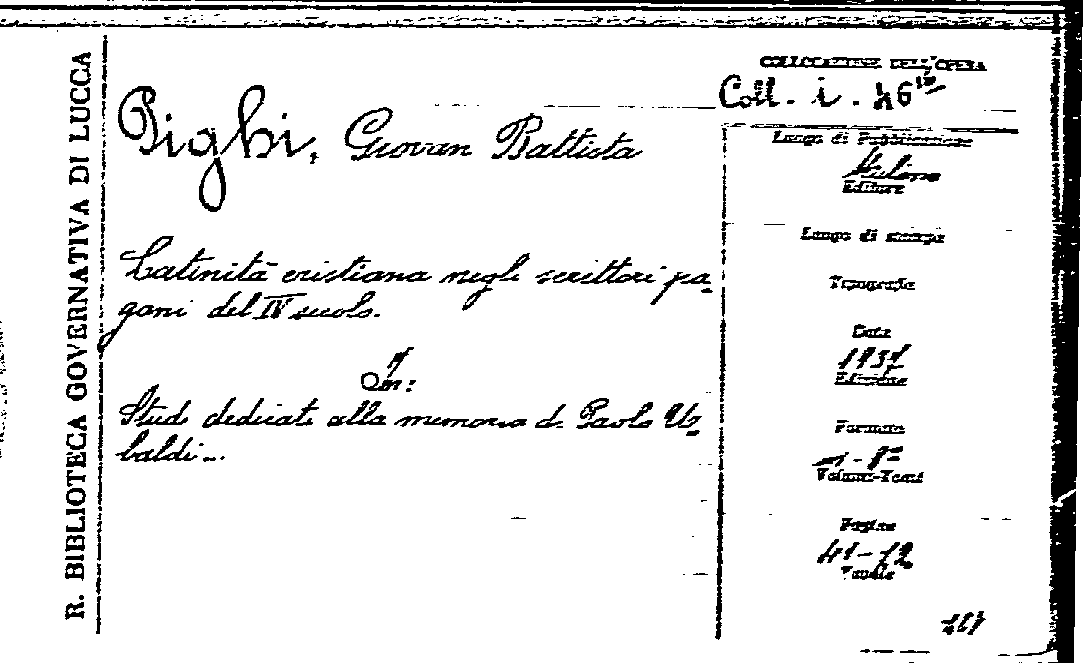 R. BIBLIOTECA GOVERNATIVA DI LUCCA
COLLOCAZIONE DELL'OPERA
Coll. i. 46
Pighi, Giovan Battista
Luogo di Pubblicazione
Milano
Editore
Latinità cristiana negli scrittori pa-
gani del IV secolo.
Luogo di stampa
Tipografia
Data
1937
Edizione
In:
Studi dedicati alla memoria di Paolo U-
baldi...
Formato
8°
Volumi-Tomi
Pagine
41-72
Tavole